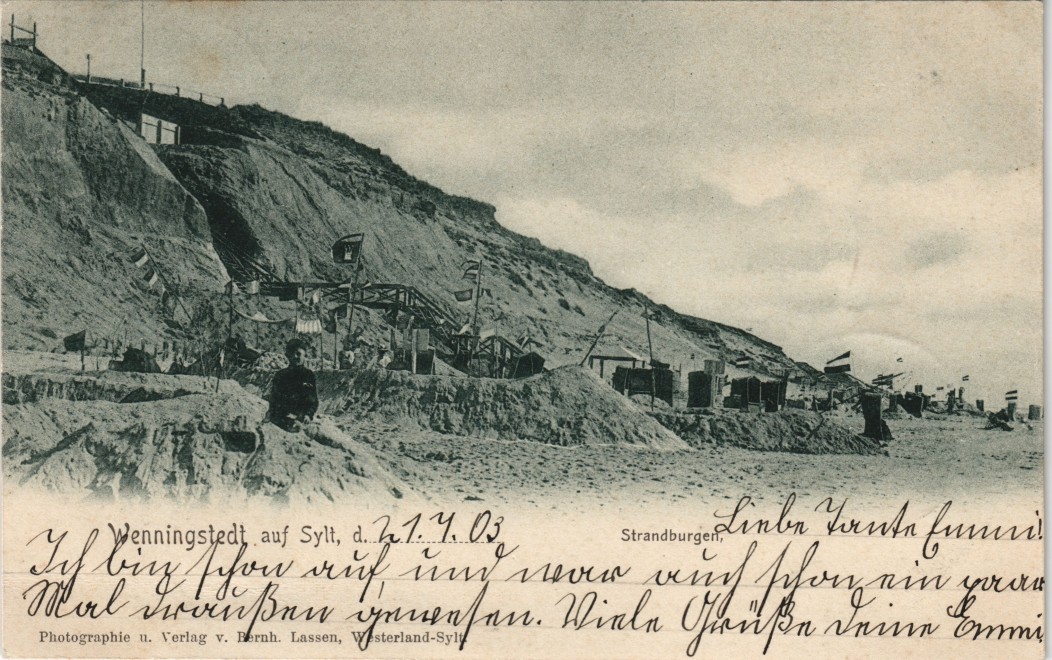 Wenningstedt auf Sylt, d. 21.7.03 Strandburgen, Liebe Tante Emmi!
Ich bin schon auf, und war auch schon ein paar
Mal draußen gewesen. Viele Grüße Deine Emmi.
Photographie u. Verlag v. Bernh. Lassen, Westerland-Sylt.